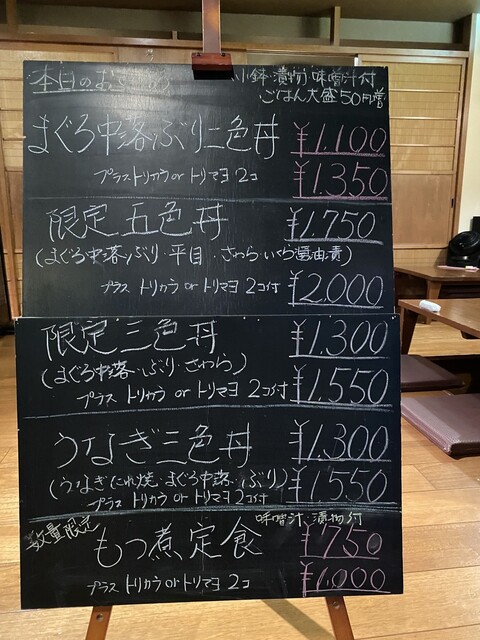 本日のお
小鉢・漬物・味噌汁付
ごはん大盛50円増
まぐろ中落ぶり二色丼 ¥1,100
プラス トリカラ or トリマヨ 2コ ¥1,350
限定五色丼 ¥1,750
(まぐろ中落・ぶり・平目・さわら・いくら醤油漬)
プラス トリカラ or トリマヨ 2コ付 ¥2,000
限定三色丼 ¥1,300
(まぐろ中落・ぶり・さわら)
プラス トリカラ or トリマヨ 2コ付 ¥1,550
うなぎ三色丼 ¥1,300
(うなぎたれ焼・まぐろ中落・ぶり) ¥1,550
プラス トリカラ or トリマヨ 2コ付
数量限定 味噌汁・漬物付
もつ煮定食 ¥750
プラス トリカラ or トリマヨ 2コ ¥1,000